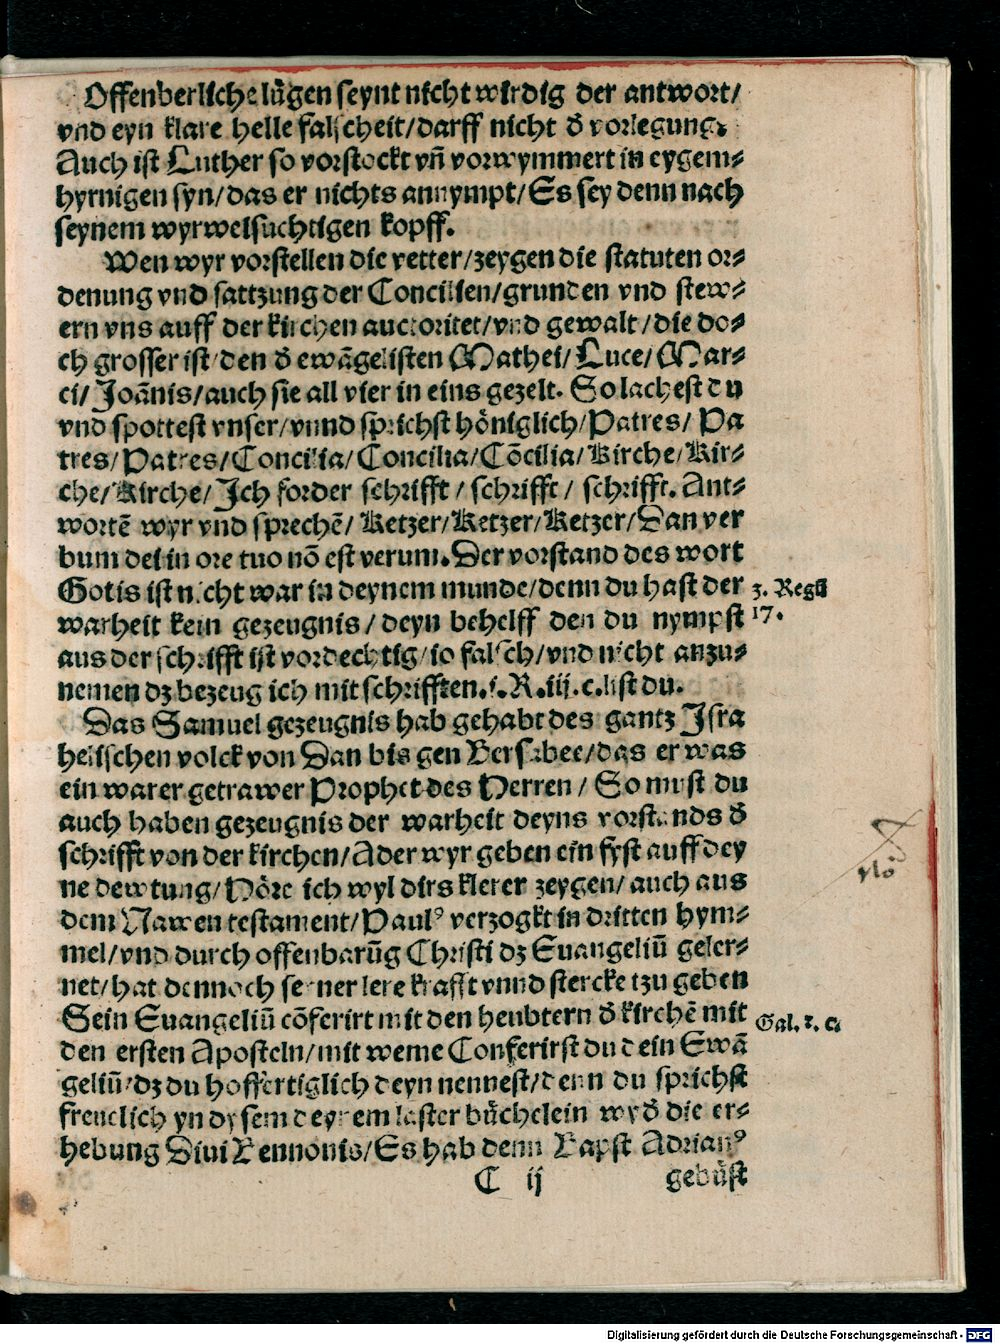 Offenberliche lügen seynt nicht wirdig der antwort/
vnd eyn klare helle falscheit/darff nicht d̕ vorlegung.
Auch ist Luther so vorstockt vn̄ vorwymmert in eygem⸗
hyrnigen syn/das er nichts annympt/Es sey denn nach
seynem wyrwelsuchtigen kopff.
Wen wyr vorstellen die vetter/zeygen die statuten or⸗
denung vnd sattzung der Concilien/grunden vnd stew⸗
ern vns auff der kirchen auctoritet/vnd gewalt/die do⸗
ch grosser ist/den d̕ ewāgelisten Mathei/Luce/Mar⸗
ci/Joānis/auch sie all vier in eins gezelt. So lachest du
vnd spottest vnser/vnnd sprichst höniglich/Patres/Pa
tres/Patres/Concilia/Concilia/Cōcilia/Kirche/Kir⸗
che/Kirche/Ich forder schrifft/schrifft/schrifft. Ant⸗
wortē wyr vnd sprechē/Ketzer/Ketzer/Ketzer/Dan ver
bum dei in ore tuo nō est verum. Der vorstand des wort
Gotis ist nicht war in deynem munde/denn du hast der
3. Regū
warheit kein gezeugnis/deyn behelff den du nympst
17.
aus der schrifft ist vordechtig/io falsch/vnd nicht anzu⸗
nemen dz bezeug ich mit schrifften. i. R. iii. c. list du.
Das Samuel gezeugnis hab gehabt des gantz Isra
helischen volck von Dan bis gen Bersabee/das er was
ein warer getrawer Prophet des Herren/So must du
auch haben gezeugnis der warheit deyns vorstands d̕
schrifft von der kirchen/Ader wyr geben ein fyst auff dey
ne dewtung/Höre ich wyl dirs klerer zeygen/auch aus
dem Nawen testament/Paulꝰ verzogkt in dritten hym⸗
mel/vnd durch offenbarūg Christi dz Euangeliū geler⸗
net/hat dennoch seiner lere krafft vnnd stercke tzu geben
Sein Euangeliū cōferirt mit den heubtern d̕ kirchē mit
Gal. 2. c.
den ersten Aposteln/mit weme Conferirst du dein Ewā
geliū/dz du hoffertiglich deyn nennest/denn du sprichst
freuelich yn dysem deynem laster büchelein wyd̕ die er⸗
hebung Diui Bennonis/Es hab denn Bapst Adrianꝰ
C ij gebüst
Digitalisierung gefördert durch die Deutsche Forschungsgemeinschaft - DFG